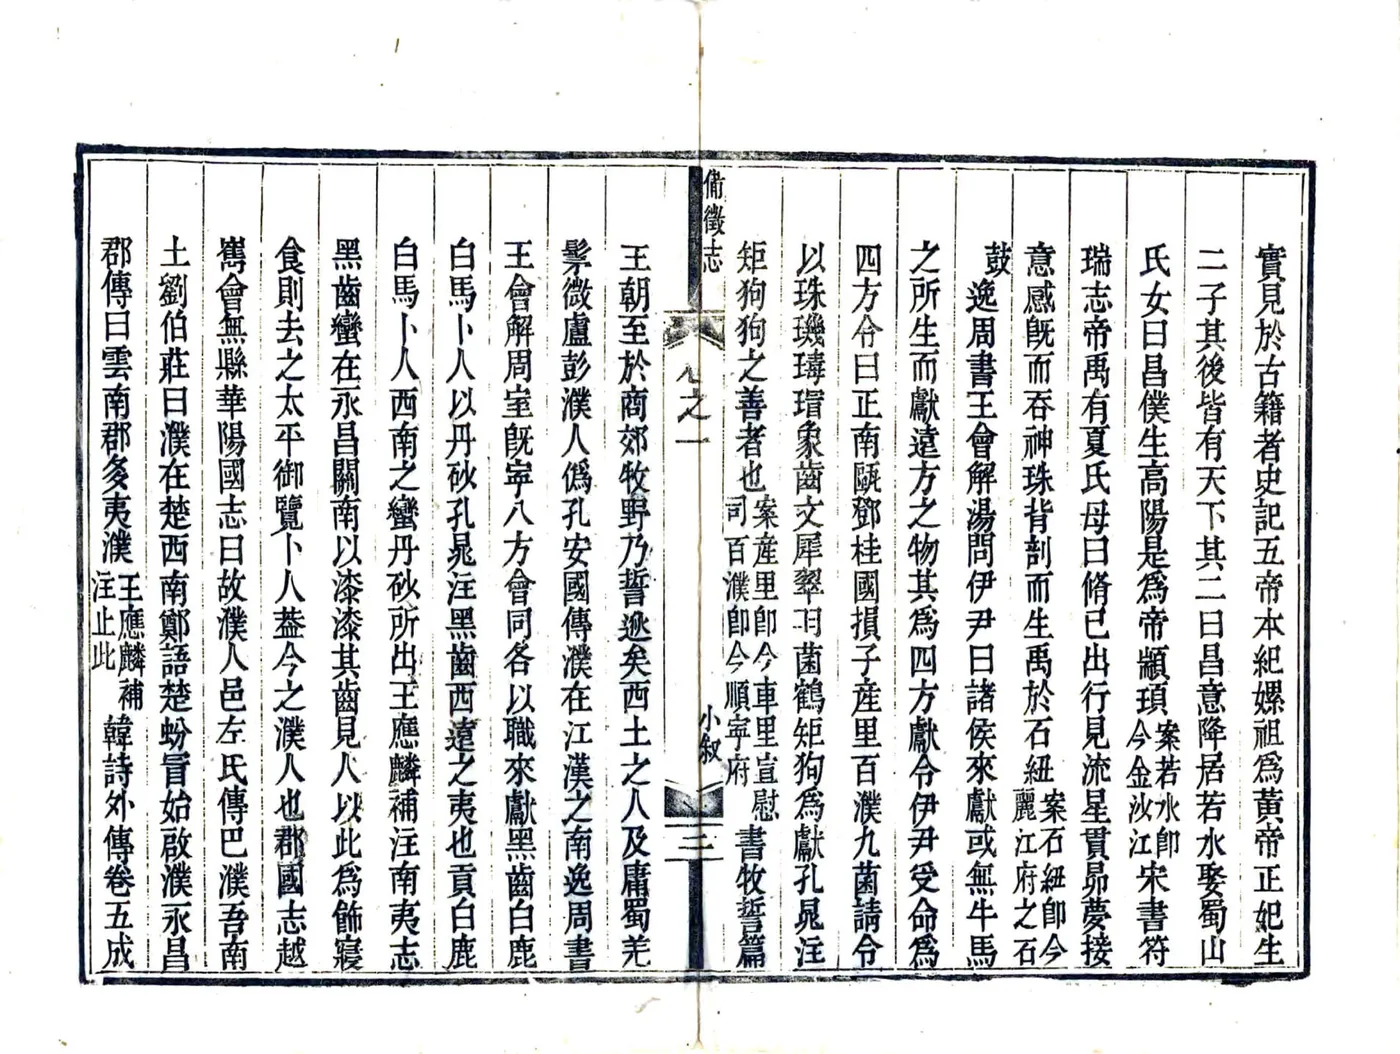 實見於古籍者史記五帝本紀嫘祖爲黃帝正妃生
二子其後皆有天下其二曰昌意降居若水娶蜀山
氏女曰昌僕生高陽是爲帝顓頊案若水卽今金沙江宋書符
瑞志帝禹有夏氏母曰脩己出行見流星貫昴夢接
意感旣而吞神珠背剖而生禹於石紐案石紐卽今麗江府之石
鼓逸周書王會解湯問伊尹曰諸侯來獻或無牛馬
之所生而獻遠方之物其爲四方獻令伊尹受命爲
四方令曰正南甌鄧桂國損子產里百濮九菌請令
以珠璣瑇瑁象齒文犀翠羽菌鶴矩狗爲獻孔晁注
矩狗狗之善者也案產里卽今車里宣慰司百濮卽今順寧府書牧誓篇
備徵志
卷之一
小叙
三
王朝至於商郊牧野乃誓逖矣西土之人及庸蜀羌
髳微盧彭濮人僞孔安國傳濮在江漢之南逸周書
王會解周室旣寧八方會同各以職來獻黑齒白鹿
白馬卜人以丹砂孔晁注黑齒西遠之夷也貢白鹿
白馬卜人西南之蠻丹砂所出王應麟補注南夷志
黑齒蠻在永昌關南以漆漆其齒見人以此爲飾寢
食則去之太平御覽卜人葢今之濮人也郡國志越
嶲會無縣華陽國志曰故濮人邑左氏傳巴濮吾南
土劉伯莊曰濮在楚西南鄭語楚蚡冒始啟濮永昌
郡傳曰雲南郡多夷濮王應麟補注止此韓詩外傳卷五成